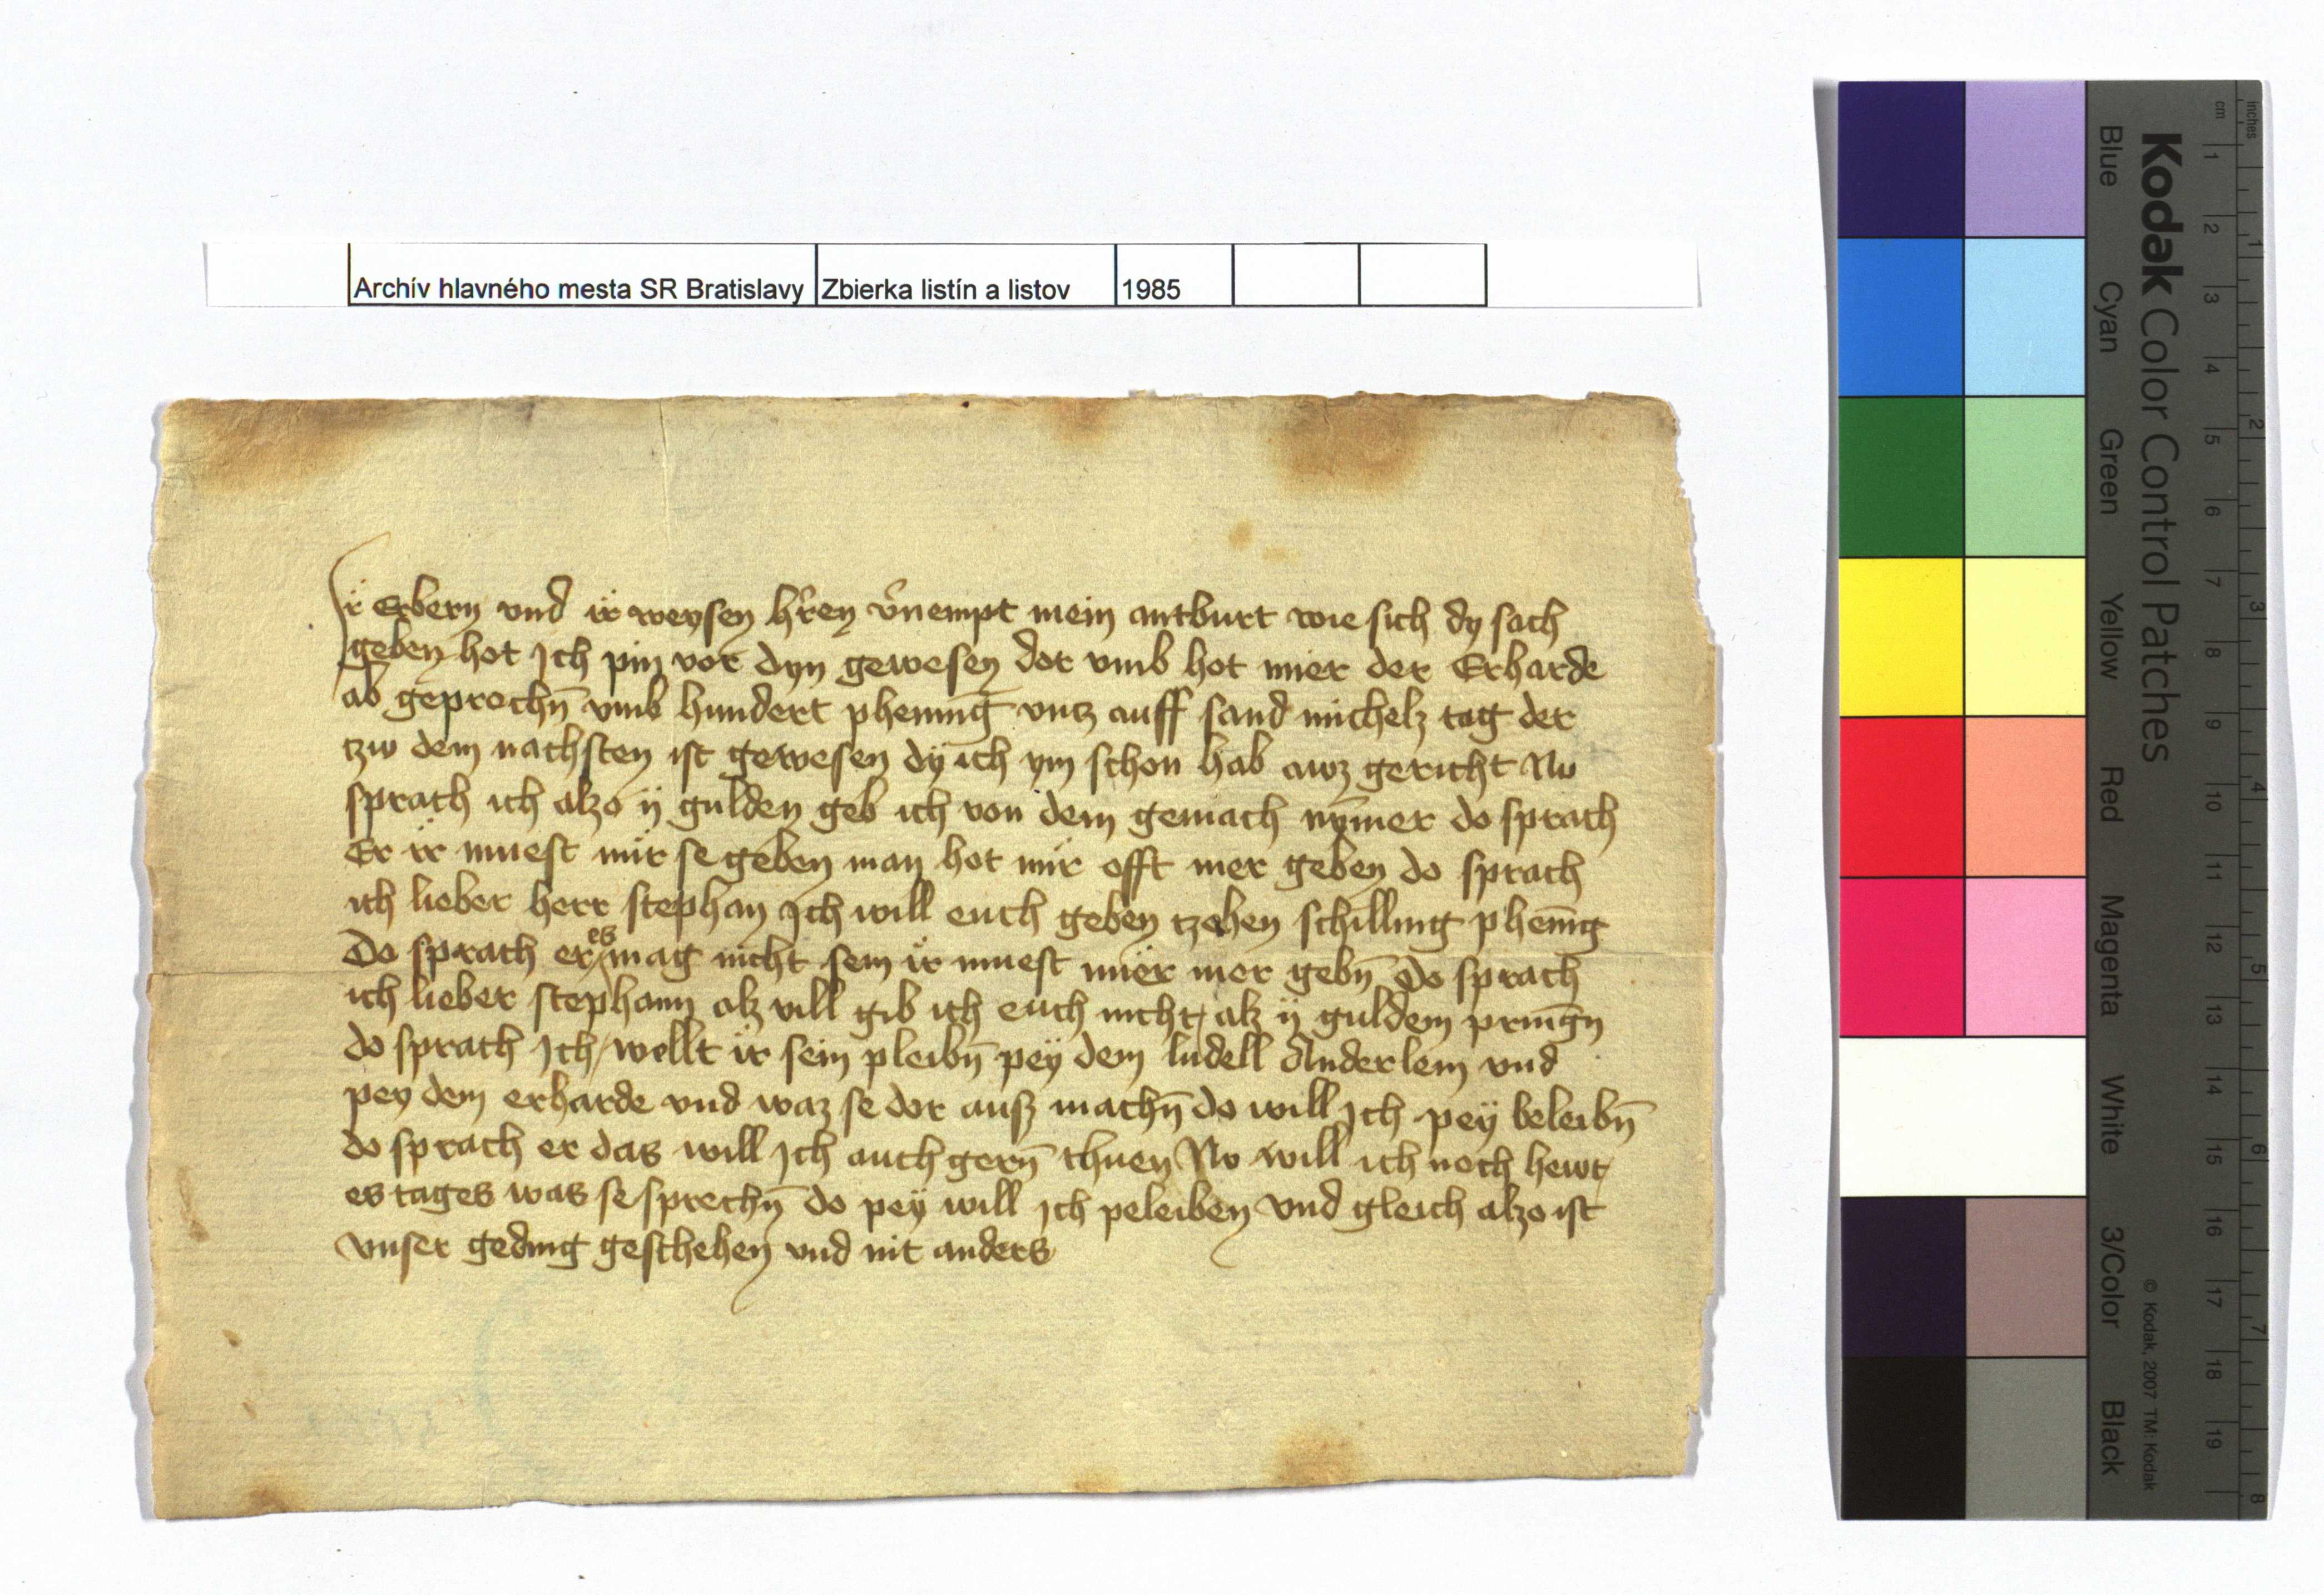 Archív hlavného mesta SR Bratislavy Zbierka listín a listov 1985
Ir Erbern vnd ir weysen hr̄en v̄nempt mein antburt wie sich dy sach
geben hot Ich pin vor dyn gewesen dor vmb hot mier der Erharde
ab geprochn̄ vmb hundert phening vntz auff sand michelz tag der
tzw dem nachsten ist gewesen dy ich ym schon hab awz gericht Nv
sprach ich alzo ij gulden geb ich von dem gemach nym̄er do sprach
Er ir muest mir se geben man hot mir offt mer geben do sprach
ich lieber herr stephan Ich will euch geben tzehen schilling phenīg
Do sprach er es mag nicht sein ir muest mier mer gebn̄ Do sprach
ich lieber stephann alz vill gib ich euch nicht / alz ij guldem
do sprach Ich / wellt ir sein pleibn̄ pey dem ludell Anderlein vnd
pey dem erharde vnd waz se dor ausz machn̄ do will Ich pey beleibn̄
do sprach er das will Ich auch gern̄ thuen Nv will ich noch hewt
es tages was se sprechn̄ do pey will Ich peleiben vnd gleich alzo ist
vnser geding geschehen vnd nit anders
Kodak Color Control Patches
Blue Cyan Green Yellow Red Magenta White 3/Color Black
© Kodak, 2007 TM: Kodak
inches 1 2 3 4 5 6 7 8
cm 1 2 3 4 5 6 7 8 9 10 11 12 13 14 15 16 17 18 19